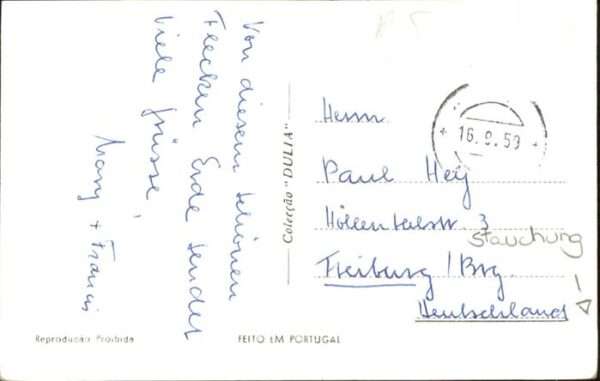 Von diesem schönen
Flecken Erde sendet
Viele Grüsse
Mary + Francis
Colecção "DULIA"
16.9.59
Herrn
Paul Hey
Höllentalstr. 3
Stauchung
Freiburg / Brg.
Deutschland
Reprodução Proibida
FEITO EM PORTUGAL